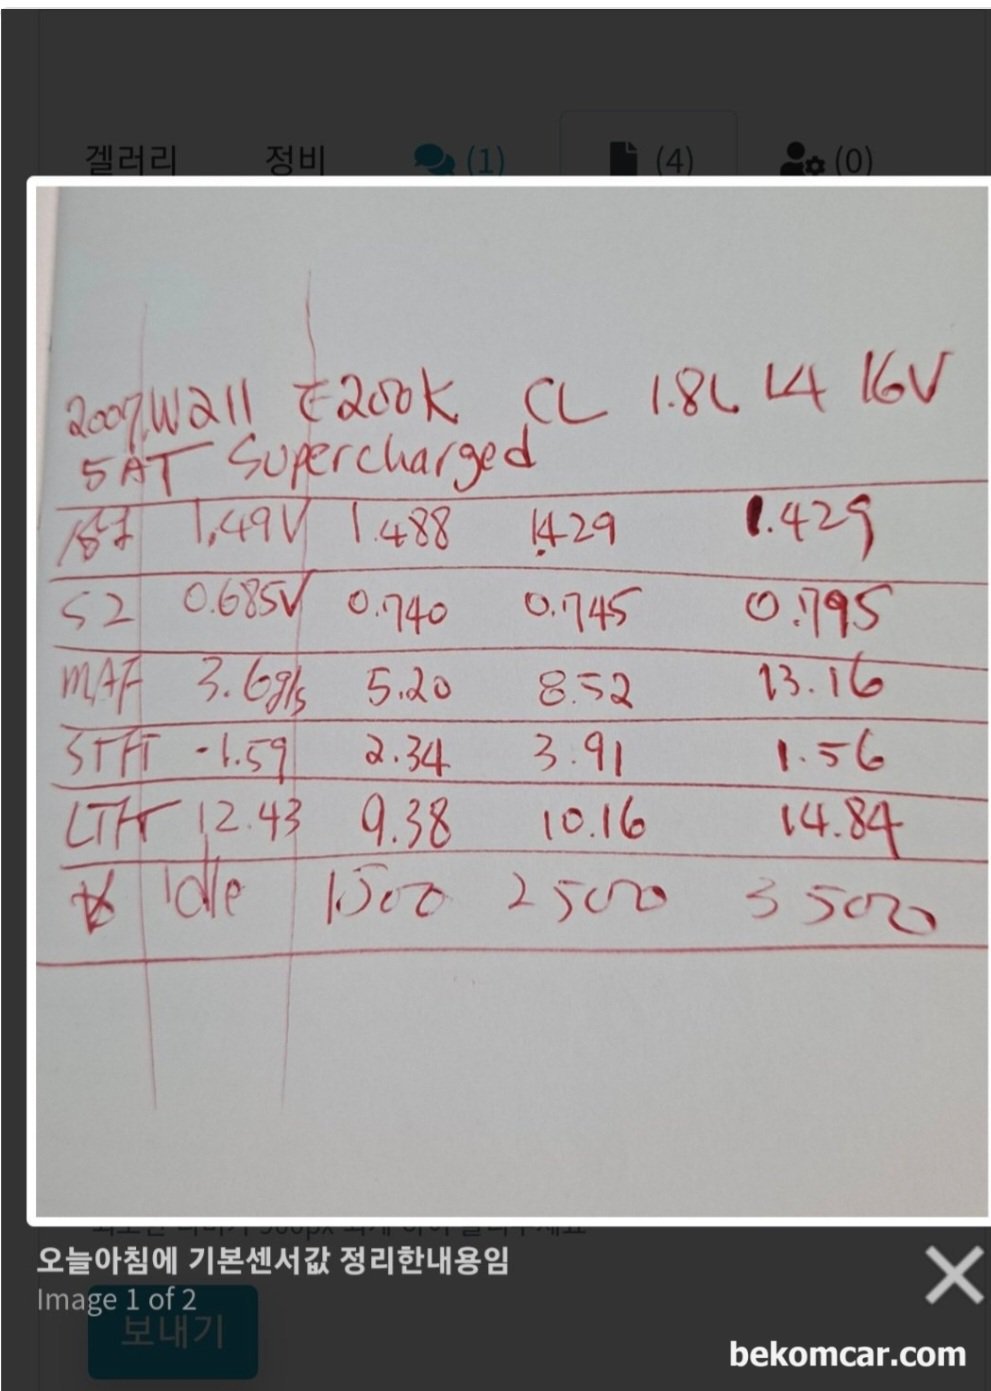 겔러리 정비 (1) (4) (0)
2007.W211 E200K CL 1.8L L4 16V
5AT Supercharged
1.49V 1.488 1.429 1.429
S2 0.685V 0.740 0.745 0.795
MAF 3.6g/s 5.20 8.52 13.16
STFT -1.59 2.34 3.91 1.56
LTFT 12.43 9.38 10.16 14.84
Idle 1500 2500 3500
오늘아침에 기본센서값 정리한내용임
Image 1 of 2
보내기
bekomcar.com